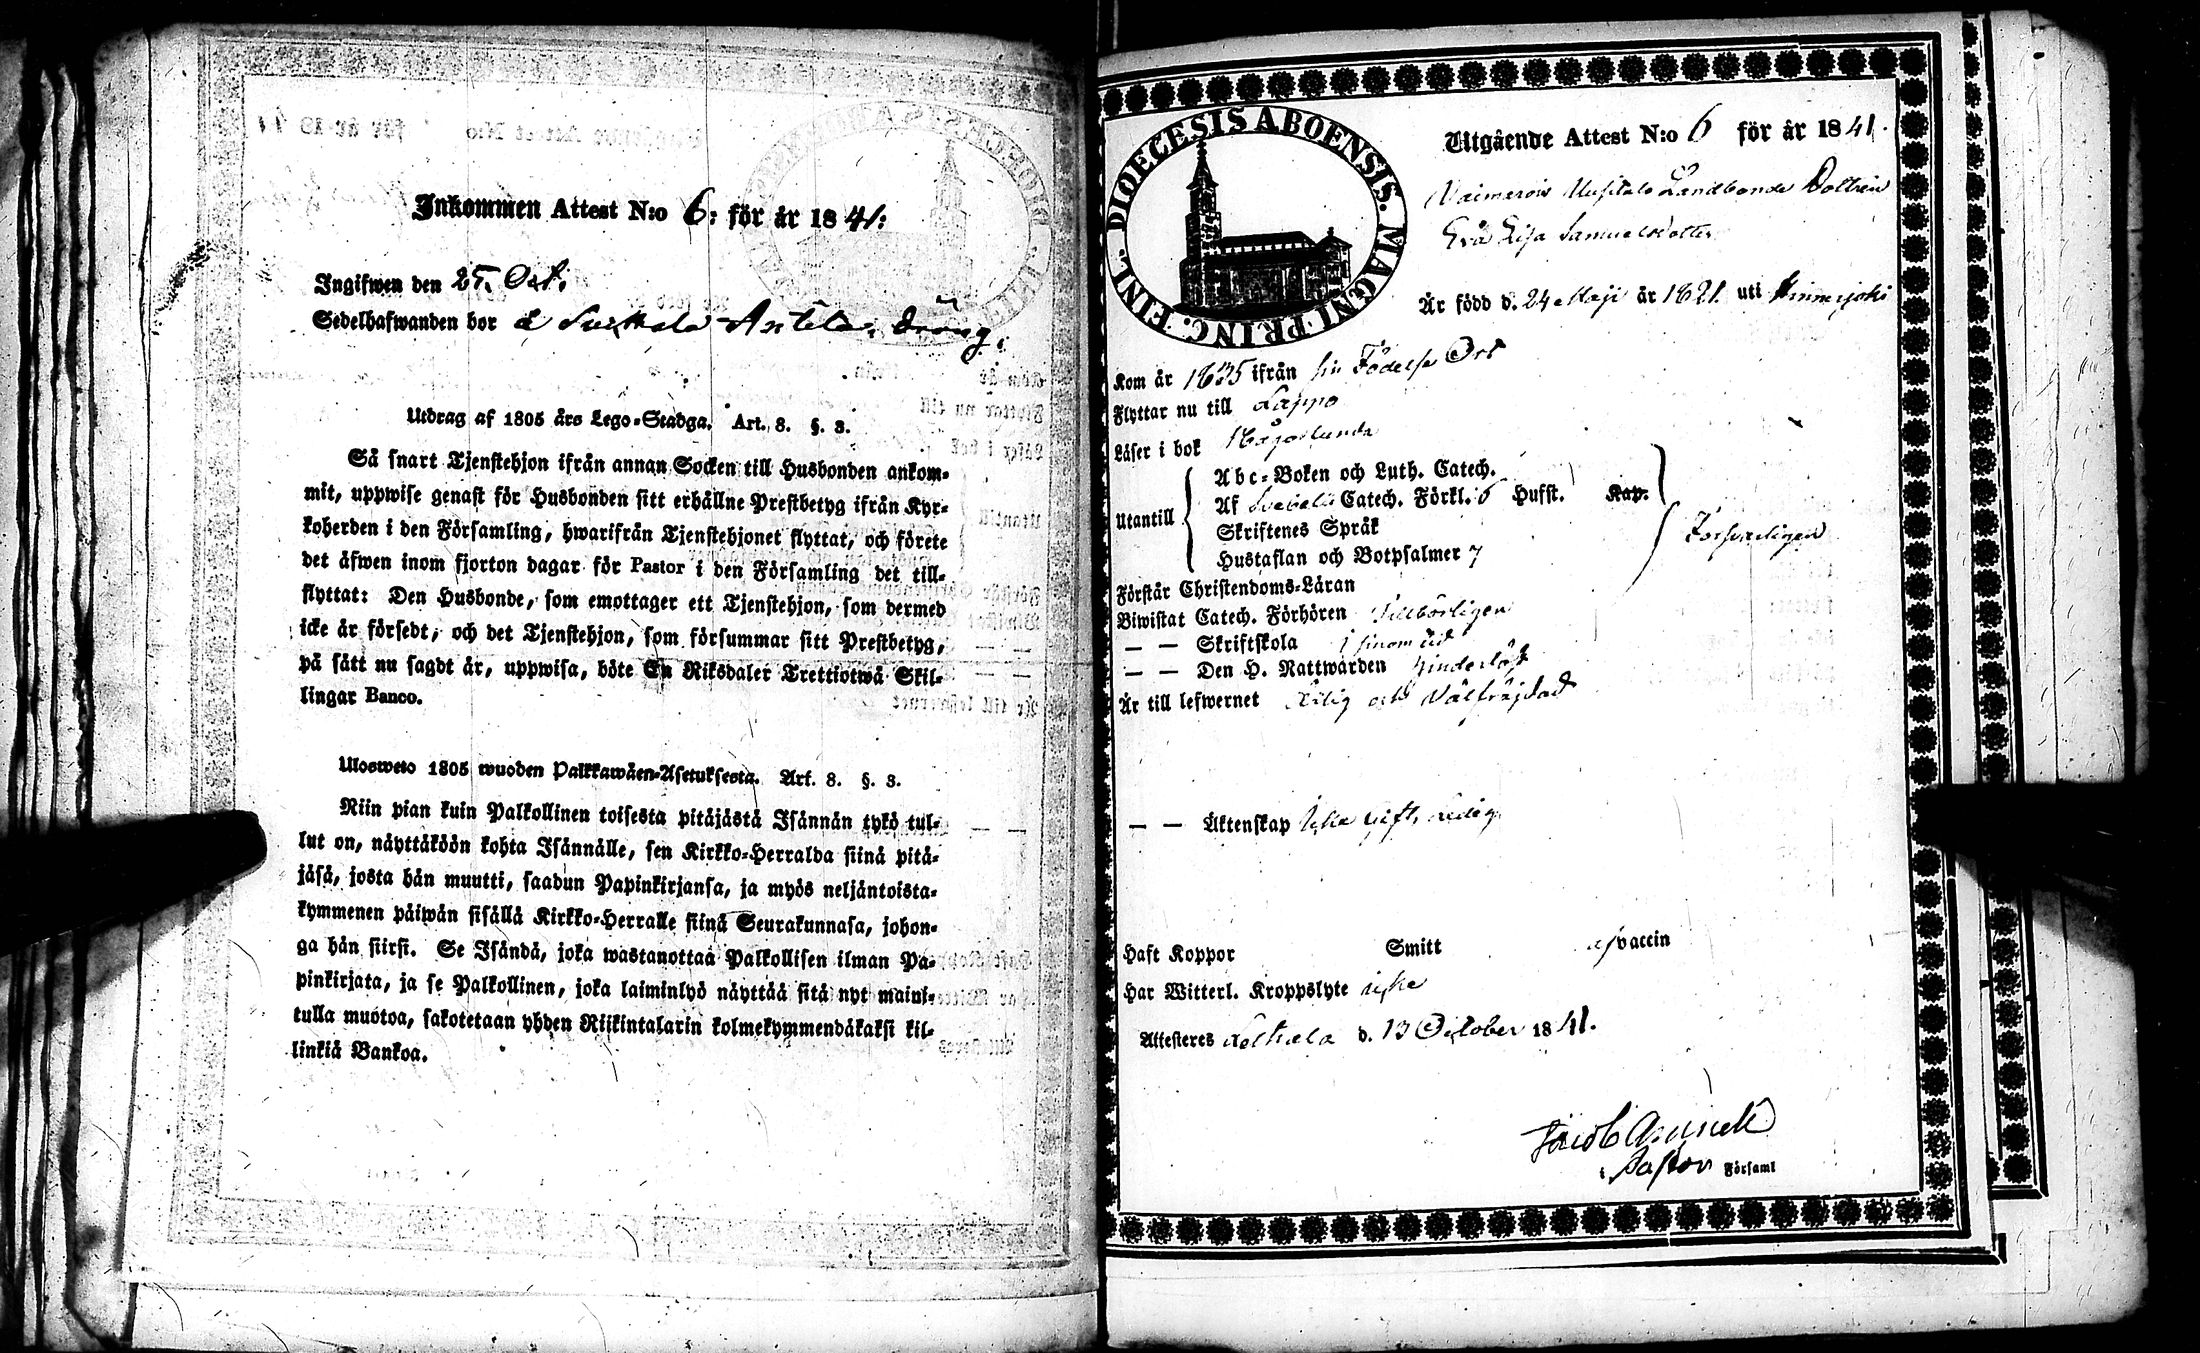 Inkommen Attest N:o 6: för år 1841:
Ingifwen den 25. Oct.
Sedelhafwanden bor å Antila. dräng.
Utdrag af 1805 års Lego-Stadga. Art. 8. §. 3.
Så snart Tjenstehjon ifrån annan Socken till Husbonden ankom-
mit, uppwise genast för Husbonden sitt erhållne Prestbetyg ifrån Kyr-
koherden i den Församling, hwarifrån Tjenstehjonet flyttat, och förete
det äfwen inom fjorton dagar för Pastor i den Församling det till-
flyttat: Den Husbonde, som emottager ett Tjenstehjon, som dermed
icke är försedt, och det Tjenstehjon, som försummar sitt Prestbetyg,
på sätt nu sagdt är, uppwisa, böte En Riksdaler Trettiotwå Skil-
lingar Banco.
Ulosweto 1805 wuoden Palkkawäen-Asetuksesta. Art. 8. §. 3.
Niin pian kuin Palkollinen toisesta pitäjästä Isännän tykö tul-
lut on, näyttäköön kohta Isännälle, sen Kirkko-Herralda siinä pitä-
jäsä, josta hän muutti, saadun Papinkirjansa, ja myös neljäntoista-
kymmenen päiwän sisällä Kirkko-Herralle siinä Seurakunnasa, johon-
ga hän siirsi. Se Isändä, joka wastanottaa Palkollisen ilman Pa-
pinkirjata, ja se Palkollinen, joka laiminlyö näyttää sitä nyt mainit-
tulla muotoa, sakotetaan yhden Riikintalarin kolmekymmendäkaksi kil-
linkiä Bankoa.
DIOECESIS ABOENSIS. MAGNI PRINC. FINL.
Utgående Attest N:o 6 för år 1841.
Landbonde Dottren
Eva Lisa Samuelsdotter
Är född d. 24 Maji år 1821. uti Kinnerjoki
Kom år 1835 ifrån sin Födelse Ort
Flyttar nu till Lappo
Läser i bok
Utantill
Abc-Boken och Luth. Catech.
Af Svebelii Catech. Förkl. 6 Hufst. Kap.
Skriftenes Språk
Hustaflan och Botpsalmer 7
Försvarligen
Förstår Christendoms-Läran
Biwistat Catech. Förhören Tillbörligen
— — Skriftskola i sinom tid
— — Den H. Nattwarden hinderlöst
Är till lefwernet Ärlig och Välfräjdad
— — Äktenskap icke Gift, ledig
Haft Koppor Smitt af vaccin
Har Witterl. Kroppslyte icke
Attesteres d. 13 October 1841.
Jacob
Pastor Församl